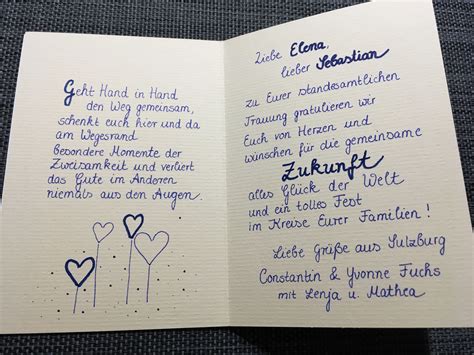 Geht Hand in Hand
den Weg gemeinsam,
schenkt euch hier und da
am Wegesrand
Besondere Momente der
Zweisamkeit und verliert
das Gute im Anderen
niemals aus den Augen.
Liebe Elena,
lieber Sebastian
zu Eurer standesamtlichen
Trauung gratulieren wir
Euch von Herzen und
wünschen für die gemeinsame
Zukunft
alles Glück der Welt
und ein tolles Fest
im Kreise Eurer Familien!
Liebe Grüße aus Sulzburg
Constantin & Yvonne Fuchs
mit Lenja u. Mathea